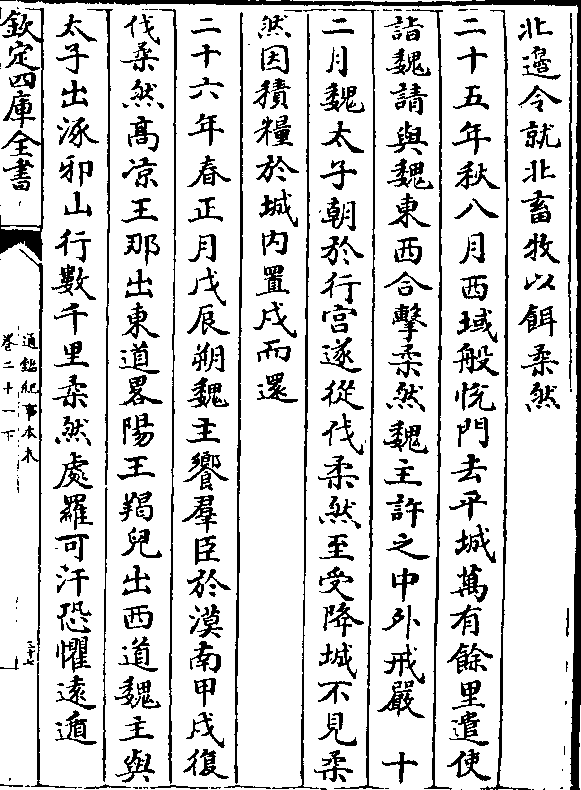 北邉令就北畜牧以餌柔然
二十五年秋八月西域般恱門去平城萬有餘里遣使
詣魏請與魏東西合擊柔然魏主許之中外戒嚴　十
二月魏太子朝於行宫遂從伐柔然至受降城不見柔
然因積糧於城内置戍而還
二十六年春正月戊辰朔魏主饗羣臣於漠南甲戌復
伐柔然髙凉王那出東道畧陽王羯兒出西道魏主與
太子出涿邪山行數千里柔然處羅可汗恐懼逺遁
欽定四庫全書
通鑑紀事本末
卷二十一下